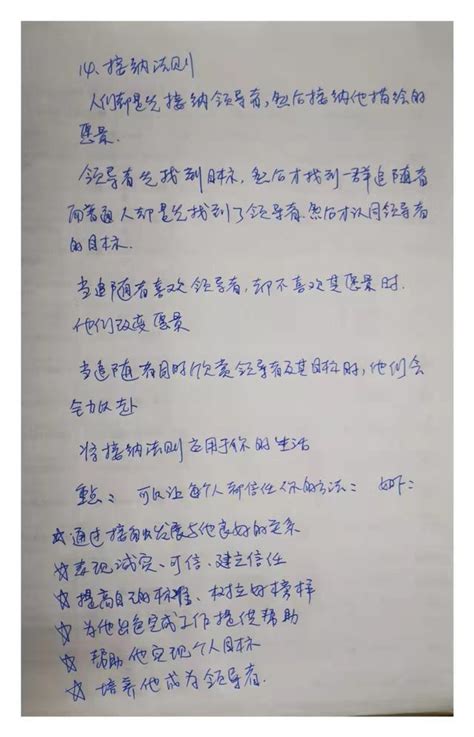 14. 接纳法则
人们都是先接纳领导者,然后接纳他描绘的
愿景.
领导者先找到目标,然后才找到一群追随者
而普通人却是先找到了领导者.然后才认同领导者
的目标.
当追随者喜欢领导者,却不喜欢其愿景时.
他们改变愿景
当追随者同时欣赏领导者及其目标时,他们会
全力以赴
将接纳法则应用于你的生活
重点: 可以让每个人都信任你的方法: 如下:
☆通过接触发展与他良好的关系
☆表现诚实、可信、建立信任
☆提高自己的标准、树立好榜样
☆为他出色完成工作提供帮助
☆帮助他实现个人目标
☆培养他成为领导者.